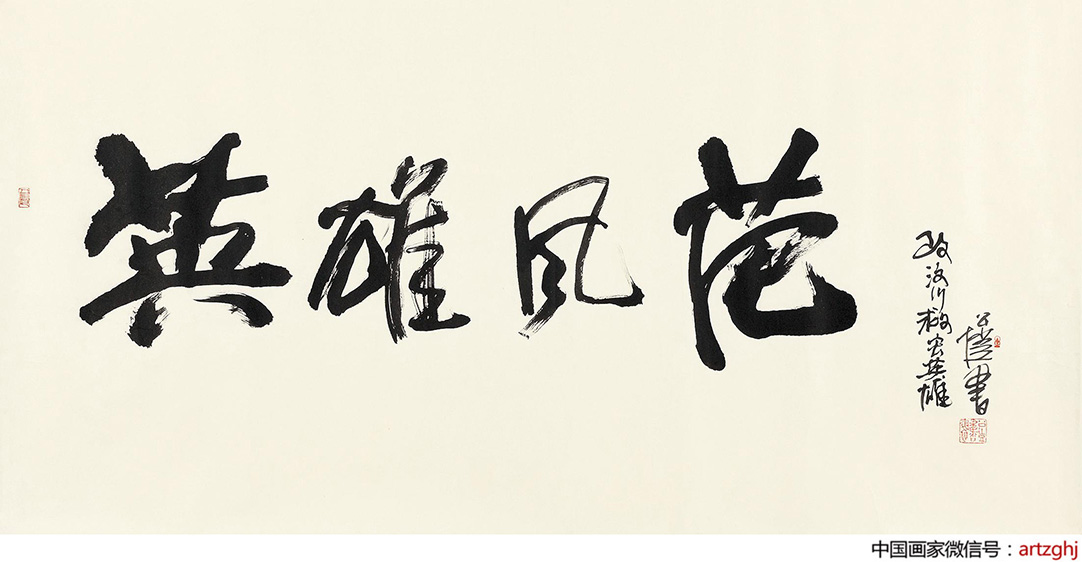 英雄风范
致汶川救灾英雄
书
中国画家微信号：artzghj